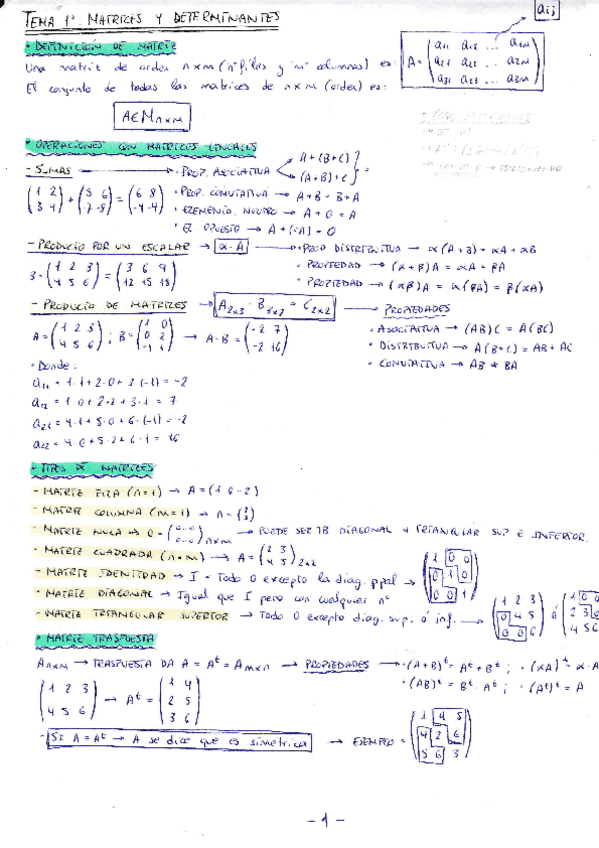 aij
TEMA 1: MATRICES Y DETERMINANTES
• DEFINICIÓN DE MATRIZ
Una matriz de orden n×m (nº filas y "m" columnas) es:
A = (a11 a12 ... a1m
a21 a22 ... a2m
a31 a32 ... a3m)
El conjunto de todas las matrices de n×m (orden) es:
A∈Mn×m
• OPERACIONES CON MATRICES LINEALES
- SUMAS → • PROP. ASOCIATIVA A+(B+C) (A+B)+C } =
(1 2 / 3 4) + (5 6 / -7 -8) = (6 8 / -4 -4)
• PROP. CONMUTATIVA → A+B = B+A
• ELEMENTO NEUTRO → A+0 = A
• EL OPUESTO → A+(-A) = 0
- PRODUCTO POR UN ESCALAR → α·A → • PROP DISTRIBUTIVA → α(A+B) = αA + αB
3·(1 2 3 / 4 5 6) = (3 6 9 / 12 15 18)
• PROPIEDAD → (α+β)A = αA + βA
• PROPIEDAD → (αβ)A = α(βA) = β(αA)
- PRODUCTO DE MATRICES → A2x3 · B3x2 = C2x2 → PROPIEDADES
A = (1 2 3 / 4 5 6) ; B = (1 0 / 0 2 / -1 1) → A·B = (-2 7 / -2 16)
• ASOCIATIVA → (AB)C = A(BC)
• DISTRIBUTIVA → A(B+C) = AB + AC
• CONMUTATIVA → AB * BA
• Donde:
a11 = 1·1+2·0+3·(-1) = -2
a12 = 1·0+2·2+3·1 = 7
a21 = 4·1+5·0+6·(-1) = -2
a22 = 4·0+5·2+6·1 = 16
• TIPOS DE MATRICES
- MATRIZ FILA (n=1) → A = (1 0 -2)
- MATRIZ COLUMNA (m=1) →
- MATRIZ NULA → 0 = (0 ... 0 / 0 ... 0)n×m → PUEDE SER TB DIAGONAL Y TRIANGULAR SUP E INFERIOR.
- MATRIZ CUADRADA (n=m) → A = (2 3 / 4 5)2x2
- MATRIZ IDENTIDAD → I = Todo 0 excepto la diag. ppal → (1 0 0 / 0 1 0 / 0 0 1)
- MATRIZ DIAGONAL → Igual que I pero con cualquier nº
- MATRIZ TRIANGULAR SUPERIOR → Todo 0 excepto diag. sup. ó inf. → (1 2 3 / 0 4 5 / 0 0 6) ó (1 0 0 / 2 3 0 / 4 5 6
• MATRIZ TRASPUESTA
An×m → TRASPUESTA DA A = Aᵗ = Am×n → PROPIEDADES → • (A+B)ᵗ = Aᵗ + Bᵗ ; • (αA)ᵗ = α·A
• (AB)ᵗ = Bᵗ·Aᵗ ; • (Aᵗ)ᵗ = A
(1 2 3 / 4 5 6) → Aᵗ = (1 4 / 2 5 / 3 6)
- Si A = Aᵗ → A se dice que es simétrica → EJEMPLO = (1 4 5 / 4 2 6 / 5 6 3)
- 1 -